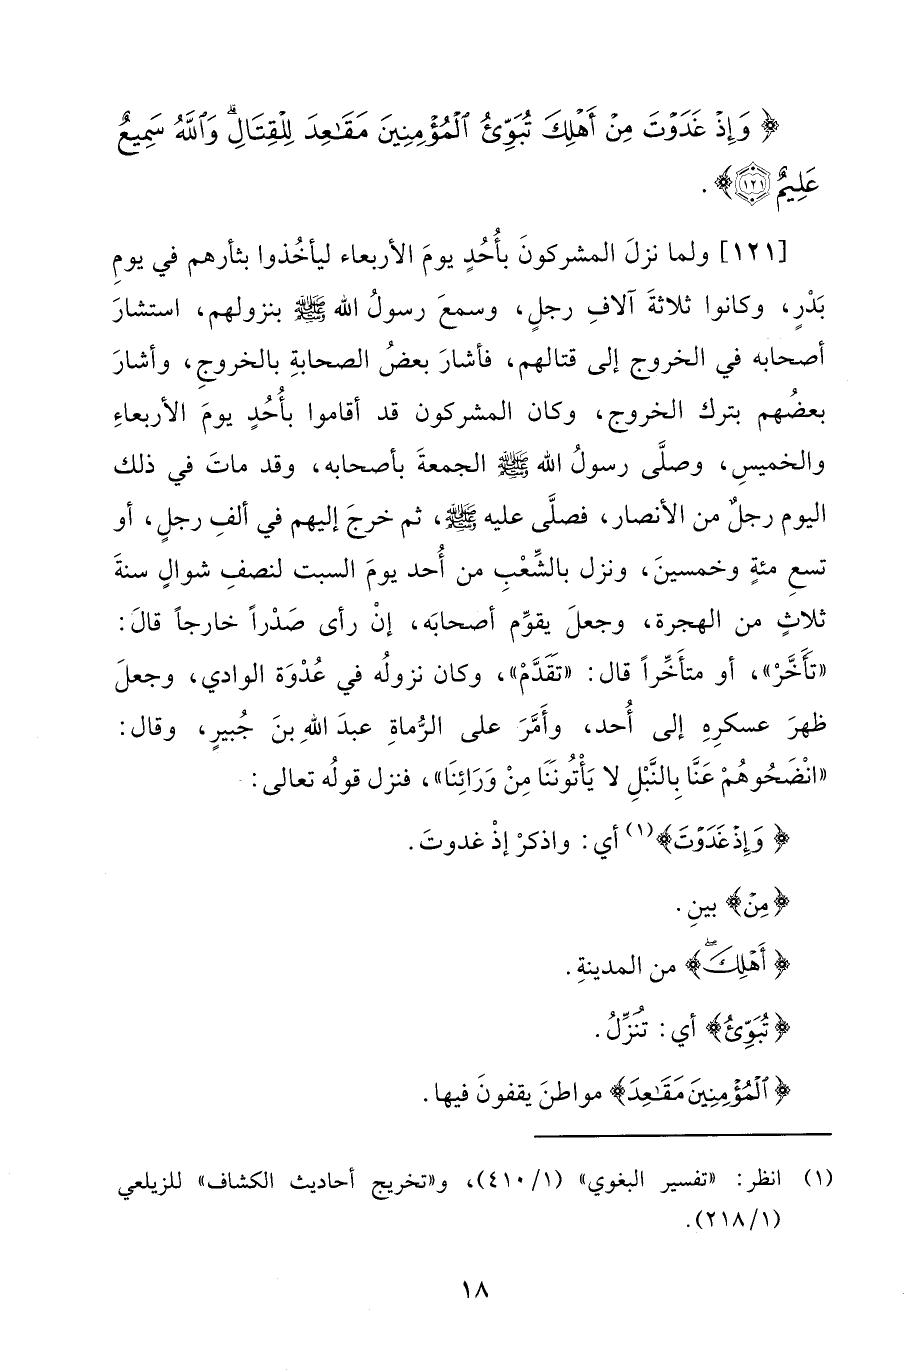 ﴿وَإِذْ غَدَوْتَ مِنْ أَهْلِكَ تُبَوِّئُ ٱلْمُؤْمِنِينَ مَقَٰعِدَ لِلْقِتَالِۗ وَٱللَّهُ سَمِيعٌ
عَلِيمٌ ﴿١٢١﴾﴾.
[١٢١] ولما نزلَ المشركونَ بأُحُدٍ يومَ الأربعاء ليأخُذوا بثأرهم في يومِ
بَدْرٍ، وكانوا ثلاثةَ آلافِ رجلٍ، وسمعَ رسولُ الله ﷺ بنزولهم، استشارَ
أصحابه في الخروج إلى قتالهم، فأشارَ بعضُ الصحابةِ بالخروجِ، وأشارَ
بعضُهم بترك الخروج، وكان المشركون قد أقاموا بأُحُدٍ يومَ الأربعاءِ
والخميسِ، وصلَّى رسولُ الله ﷺ الجمعةَ بأصحابه، وقد ماتَ في ذلك
اليوم رجلٌ من الأنصار، فصلَّى عليه ﷺ، ثم خرجَ إليهم في ألفِ رجلٍ، أو
تسعِ مئةٍ وخمسينَ، ونزل بالشِّعْبِ من أُحد يومَ السبت لنصفِ شوالٍ سنةَ
ثلاثٍ من الهجرة، وجعلَ يقوِّم أصحابَه، إنْ رأى صَدْراً خارجاً قالَ:
«تَأَخَّرْ»، أو متأخِّراً قال: «تَقَدَّمْ»، وكان نزولُه في عُدْوَة الوادي، وجعلَ
ظهرَ عسكرِهِ إلى أُحد، وأَمَّرَ على الرُّماةِ عبدَ اللهِ بنَ جُبيرٍ، وقال:
«انْضَحُوهُمْ عَنَّا بِالنَّبْلِ لا يَأْتُونَنَا مِنْ وَرَائِنَا»، فنزل قولُه تعالى:
﴿وَإِذْ غَدَوْتَ﴾(١) أي: واذكرْ إذْ غدوتَ.
﴿مِنْ﴾ بينِ.
﴿أَهْلِكَۖ﴾ من المدينةِ.
﴿تُبَوِّئُ﴾ أي: تُنَزِّلُ.
﴿ٱلْمُؤْمِنِينَ مَقَٰعِدَ﴾ مواطنَ يقفونَ فيها.
(١) انظر: «تفسير البغوي» (١/ ٤١٠)، و«تخريج أحاديث الكشاف» للزيلعي
(١/ ٢١٨).
١٨